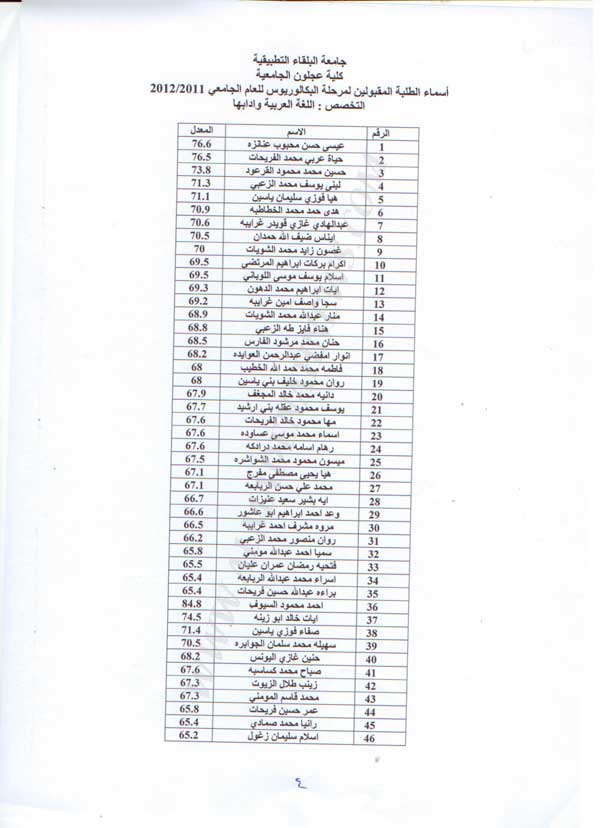 جامعة البلقاء التطبيقية
كلية عجلون الجامعية
أسماء الطلبة المقبولين لمرحلة البكالوريوس للعام الجامعي 2012/2011
التخصص : اللغة العربية وادابها
الرقم الاسم المعدل
1 عيسى حسن محبوب عنانزه 76.6
2 حياة عربي محمد الفريحات 76.5
3 حسين محمد محمود القرعود 73.8
4 لبنى يوسف محمد الزعبي 71.3
5 هيا فوزي سليمان ياسين 71.1
6 هدى حمد محمد الخطاطبه 70.9
7 عبدالهادي غازي قويدر غرايبه 70.6
8 ايناس ضيف الله حمدان 70.5
9 غصون زايد محمد الشويات 70
10 اكرام بركات ابراهيم المرتضى 69.5
11 اسلام يوسف موسى اللوباني 69.5
12 ايات ابراهيم محمد الدهون 69.3
13 سجا واصف امين غرايبه 69.2
14 منار عبدالله محمد الشويات 68.9
15 هناء فايز طه الزعبي 68.8
16 حنان محمد مرشود الفارس 68.5
17 انوار امفضي عبدالرحمن العوايده 68.2
18 فاطمه محمد حمد الله الخطيب 68
19 روان محمود خليف بني ياسين 68
20 دانيه محمد خالد المجغف 67.9
21 يوسف محمود عقله بني ارشيد 67.7
22 مها محمود خالد الفريحات 67.6
23 اسماء محمد موسى عساوده 67.6
24 رهام اسامه محمد درادكه 67.6
25 ميسون محمود محمد الشواشره 67.5
26 هيا يحيى مصطفى مفرج 67.1
27 محمد علي حسن الربابعه 67.1
28 ايه بشير سعيد عنيزات 66.7
29 وعد احمد ابراهيم ابو عاشور 66.6
30 مروه مشرف احمد غرايبه 66.5
31 روان منصور محمد الزعبي 66.2
32 سميا احمد عبدالله مومني 65.8
33 فتحيه رمضان عمران عليان 65.5
34 اسراء محمد عبدالله الربابعه 65.4
35 براءه عبدالله حسين فريحات 65.4
36 احمد محمود السيوف 84.8
37 ايات خالد ابو زينه 74.5
38 صفاء فوزي ياسين 71.4
39 سهيله محمد سلمان الجوابره 70.5
40 حنين غازي اليونس 68.2
41 صباح محمد كساسبه 67.6
42 زينب طلال الزيوت 67.3
43 محمد قاسم المومني 67.3
44 عمر حسين فريحات 65.8
45 رانيا محمد صمادي 65.4
46 اسلام سليمان زغول 65.2
٤